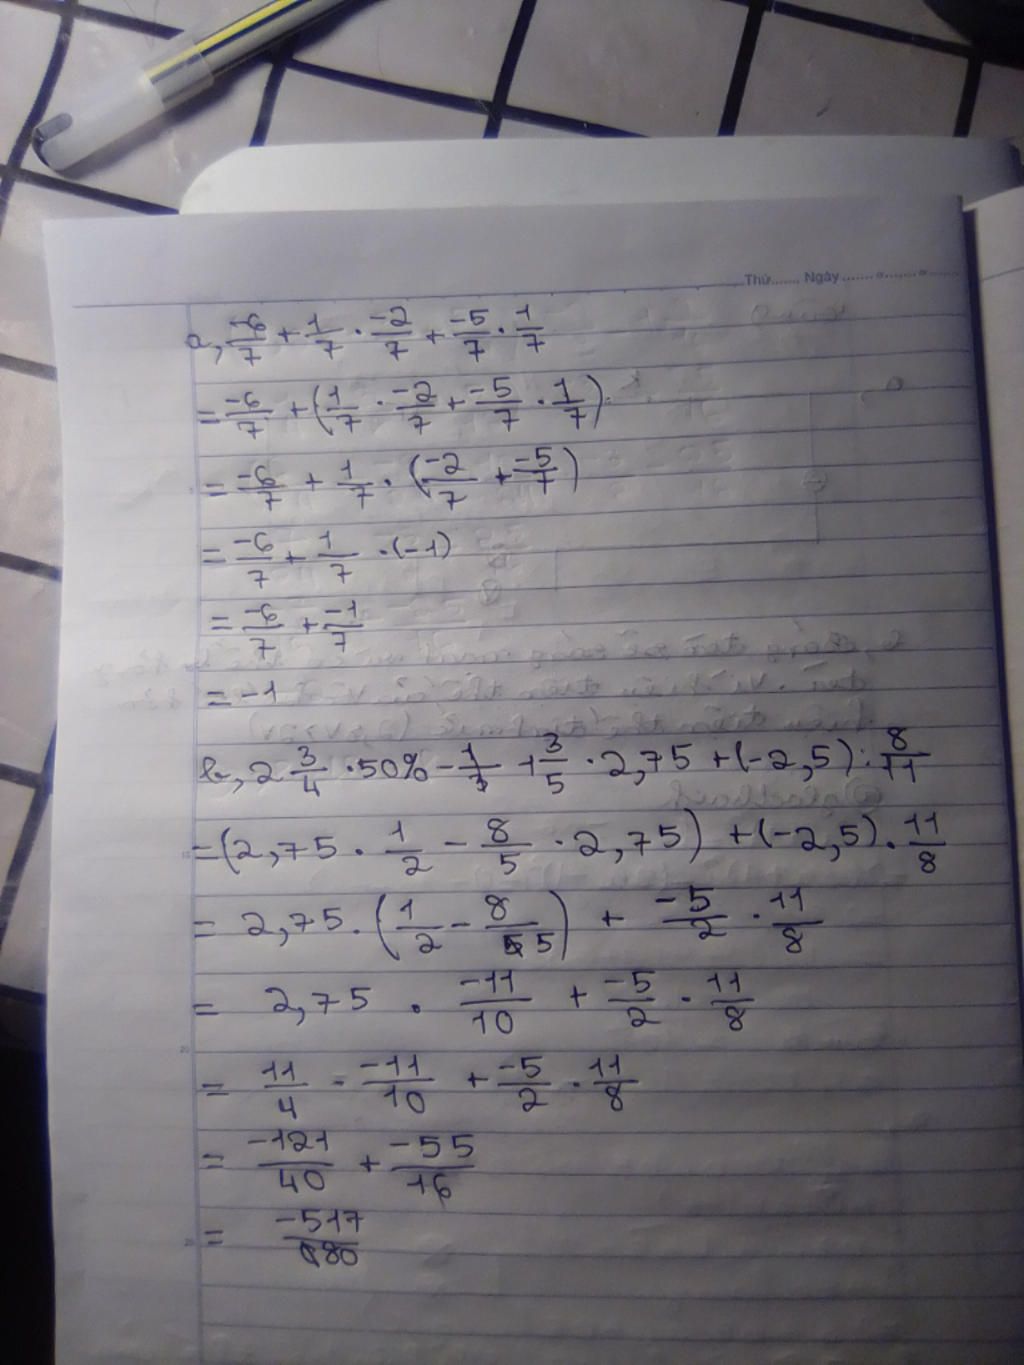 Thứ....... Ngày ....... o ....... o .......
a, -6/7 + 1/7 . -2/7 + -5/7 . 1/7
= -6/7 + (1/7 . -2/7 + -5/7 . 1/7)
= -6/7 + 1/7 . (-2/7 + -5/7)
= -6/7 + 1/7 . (-1)
= -6/7 + -1/7
= -1
b, 2 3/4 . 50% - 1 3/5 . 2,75 + (-2,5) : 8/11
= (2,75 . 1/2 - 8/5 . 2,75) + (-2,5) . 11/8
= 2,75 . (1/2 - 8/5) + -5/2 . 11/8
= 2,75 . -11/10 + -5/2 . 11/8
= 11/4 . -11/10 + -5/2 . 11/8
= -121/40 + -55/16
= -517/80